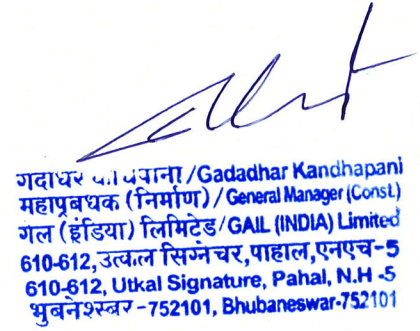 गदाधर /Gadadhar Kandhapani
महाप्रबधक (निर्माण) / General Manager (Const.)
गेल (इंडिया) लिमिटेड/GAIL (INDIA) Limited
610-612, उत्कल सिग्नेचर, पाहाल, एनएच-5
610-612, Utkal Signature, Pahal, N.H -5
भुबनेश्स्बर -752101, Bhubaneswar-752101